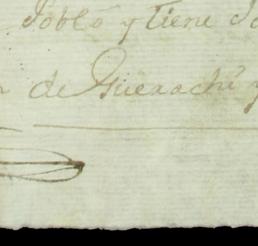 Pobló y tiene
de Guerachi y